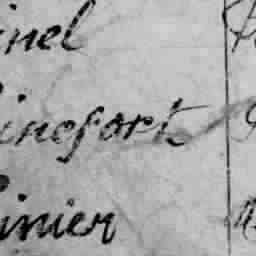 inel
inefort
inier